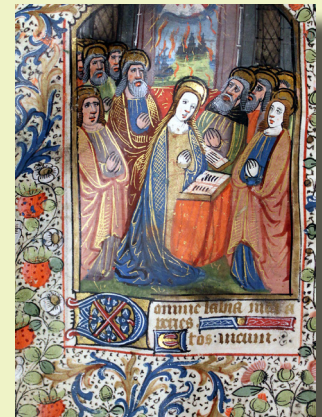 Domine labia mea a
peries
Et os meum